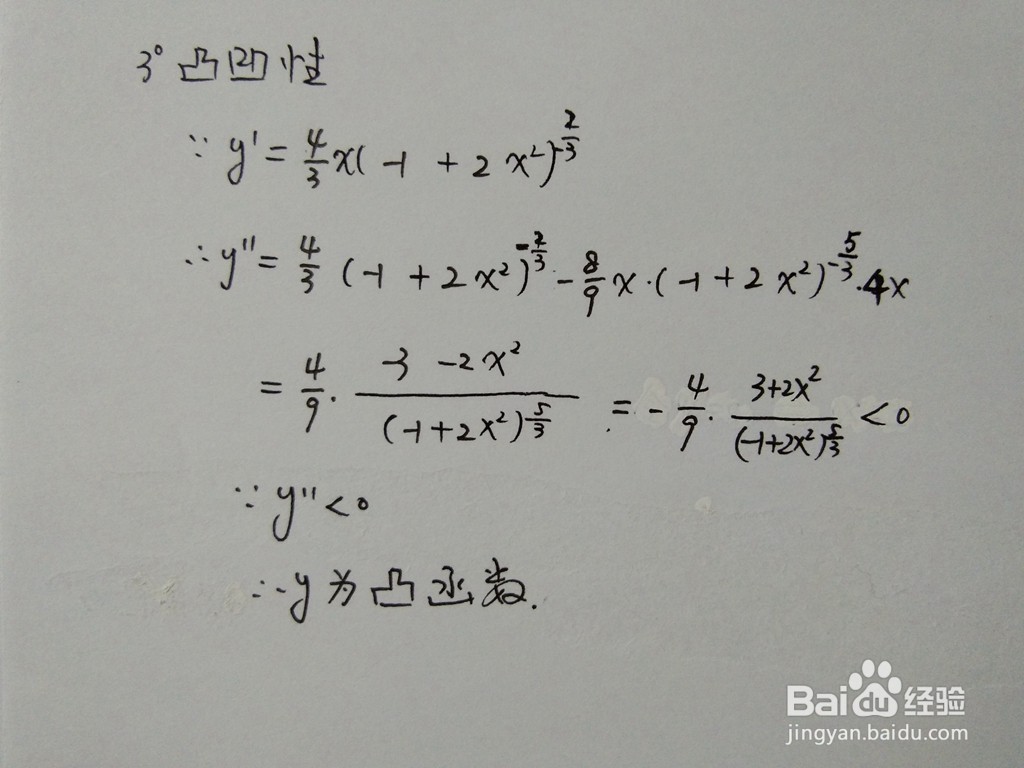 3° 凸凹性
∵ y' = 4/3 x(-1 + 2x²)^(-2/3)
∴ y'' = 4/3 (-1 + 2x²)^(-2/3) - 8/9 x·(-1 + 2x²)^(-5/3)·4x
= 4/9 · (-3 -2x²)/(-1+2x²)^(5/3) = - 4/9 · (3+2x²)/(-1+2x²)^(5/3) < 0
∵ y'' < 0
∴ y 为凸函数.
Baidu经验
jingyan.baidu.com